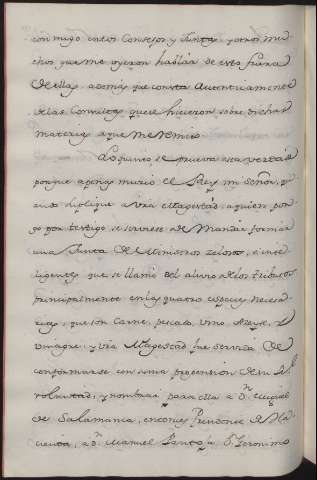 con migo en los Consejos, y Juntas, y otros mu
chos que me oyeron hablar de esta fuerza
de ellas, además que consta autenticamente
de las Consultas que se hicieron sobre dichas
materias a que me remito.
Lo segundo, se prueva esta verdad
porque apenas murio el Rey mi Señor, q
ando suplique a Vra Magestad, a quien pon
go por testigo se sirviese de Mandar formar
una Junta de Ministros zelosos, e inte
ligentes, que se llamó del alivio de los tributos
principalmente en las quatro especies Necesa
rias, que son Carne, pescado, vino, Azeyte, y
vinagre, y Vra Magestad fue servida de
conformarse con suma propension de su Rl
voluntad, y nombrar para ella a Dn Miguel
de Salamanca, entonces Presidente de Ha
cienda, a Dn Manuel Pantoja Dn Geronimo